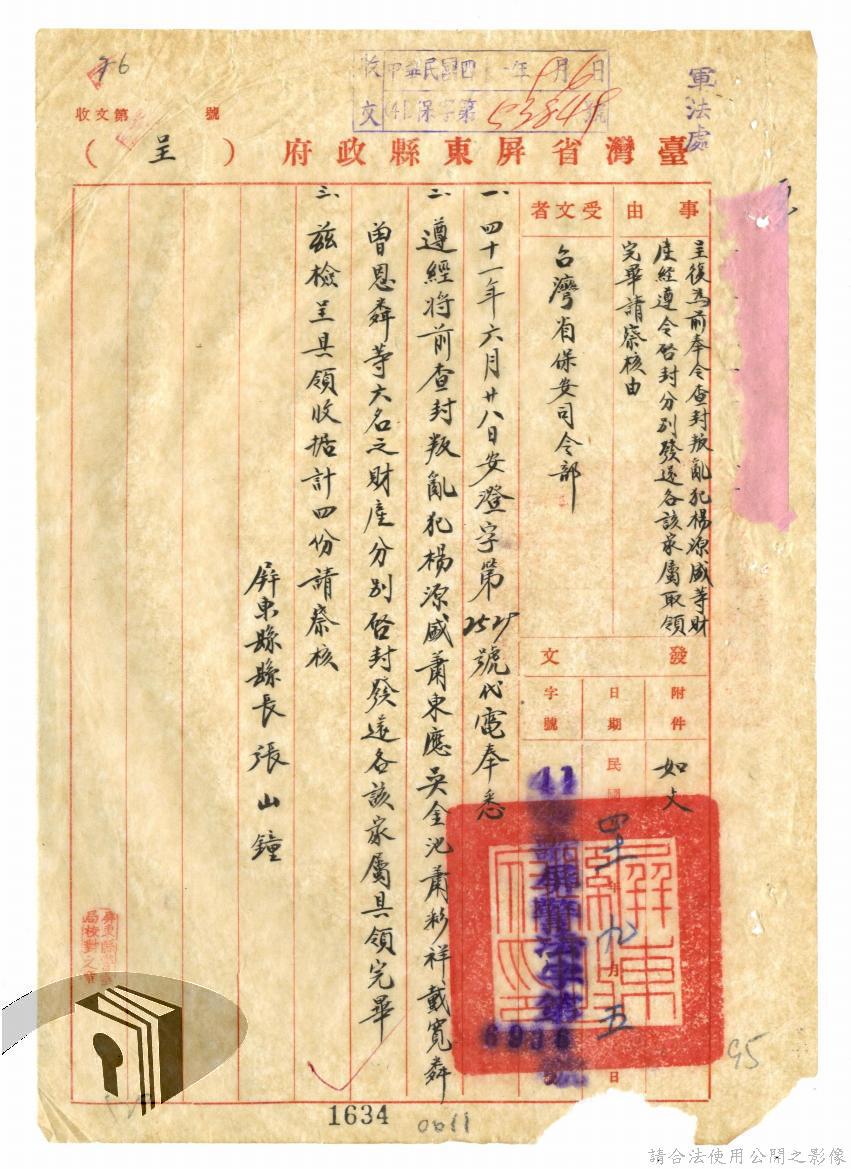 76
收文第 號
收 中華民國四一年9月6日
文 (41)保字第53849號
軍法處
臺灣省屏東縣政府（呈）
事由
呈復為前奉令查封叛亂犯楊源盛等財
產經遵令啓封分別發還各該家屬取領
完畢請察核由
受文者
台灣省保安司令部
發文
附件
如文
日期
民國四十一年九月五日
字號
41
屏警法字第
6936
號
一、四十一年六月廿八日安澄字第2529號代電奉悉
二、遵經將前查封叛亂犯楊源盛蕭東應吳金池蕭彩祥戴寬舜
曾恩舜等六名之財產分別啓封發還各該家屬具領完畢
三、茲檢呈具領收据計四份請察核
屏東縣縣長張山鐘
屏東縣警察
局校對之章
95
1634
0011
請合法使用公開之影像